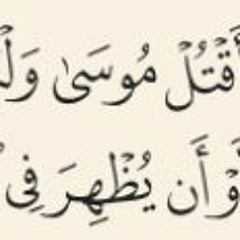 أَقْتُلْ مُوسَىٰ وَلْ
أَوْ أَن يُظْهِرَ فِى